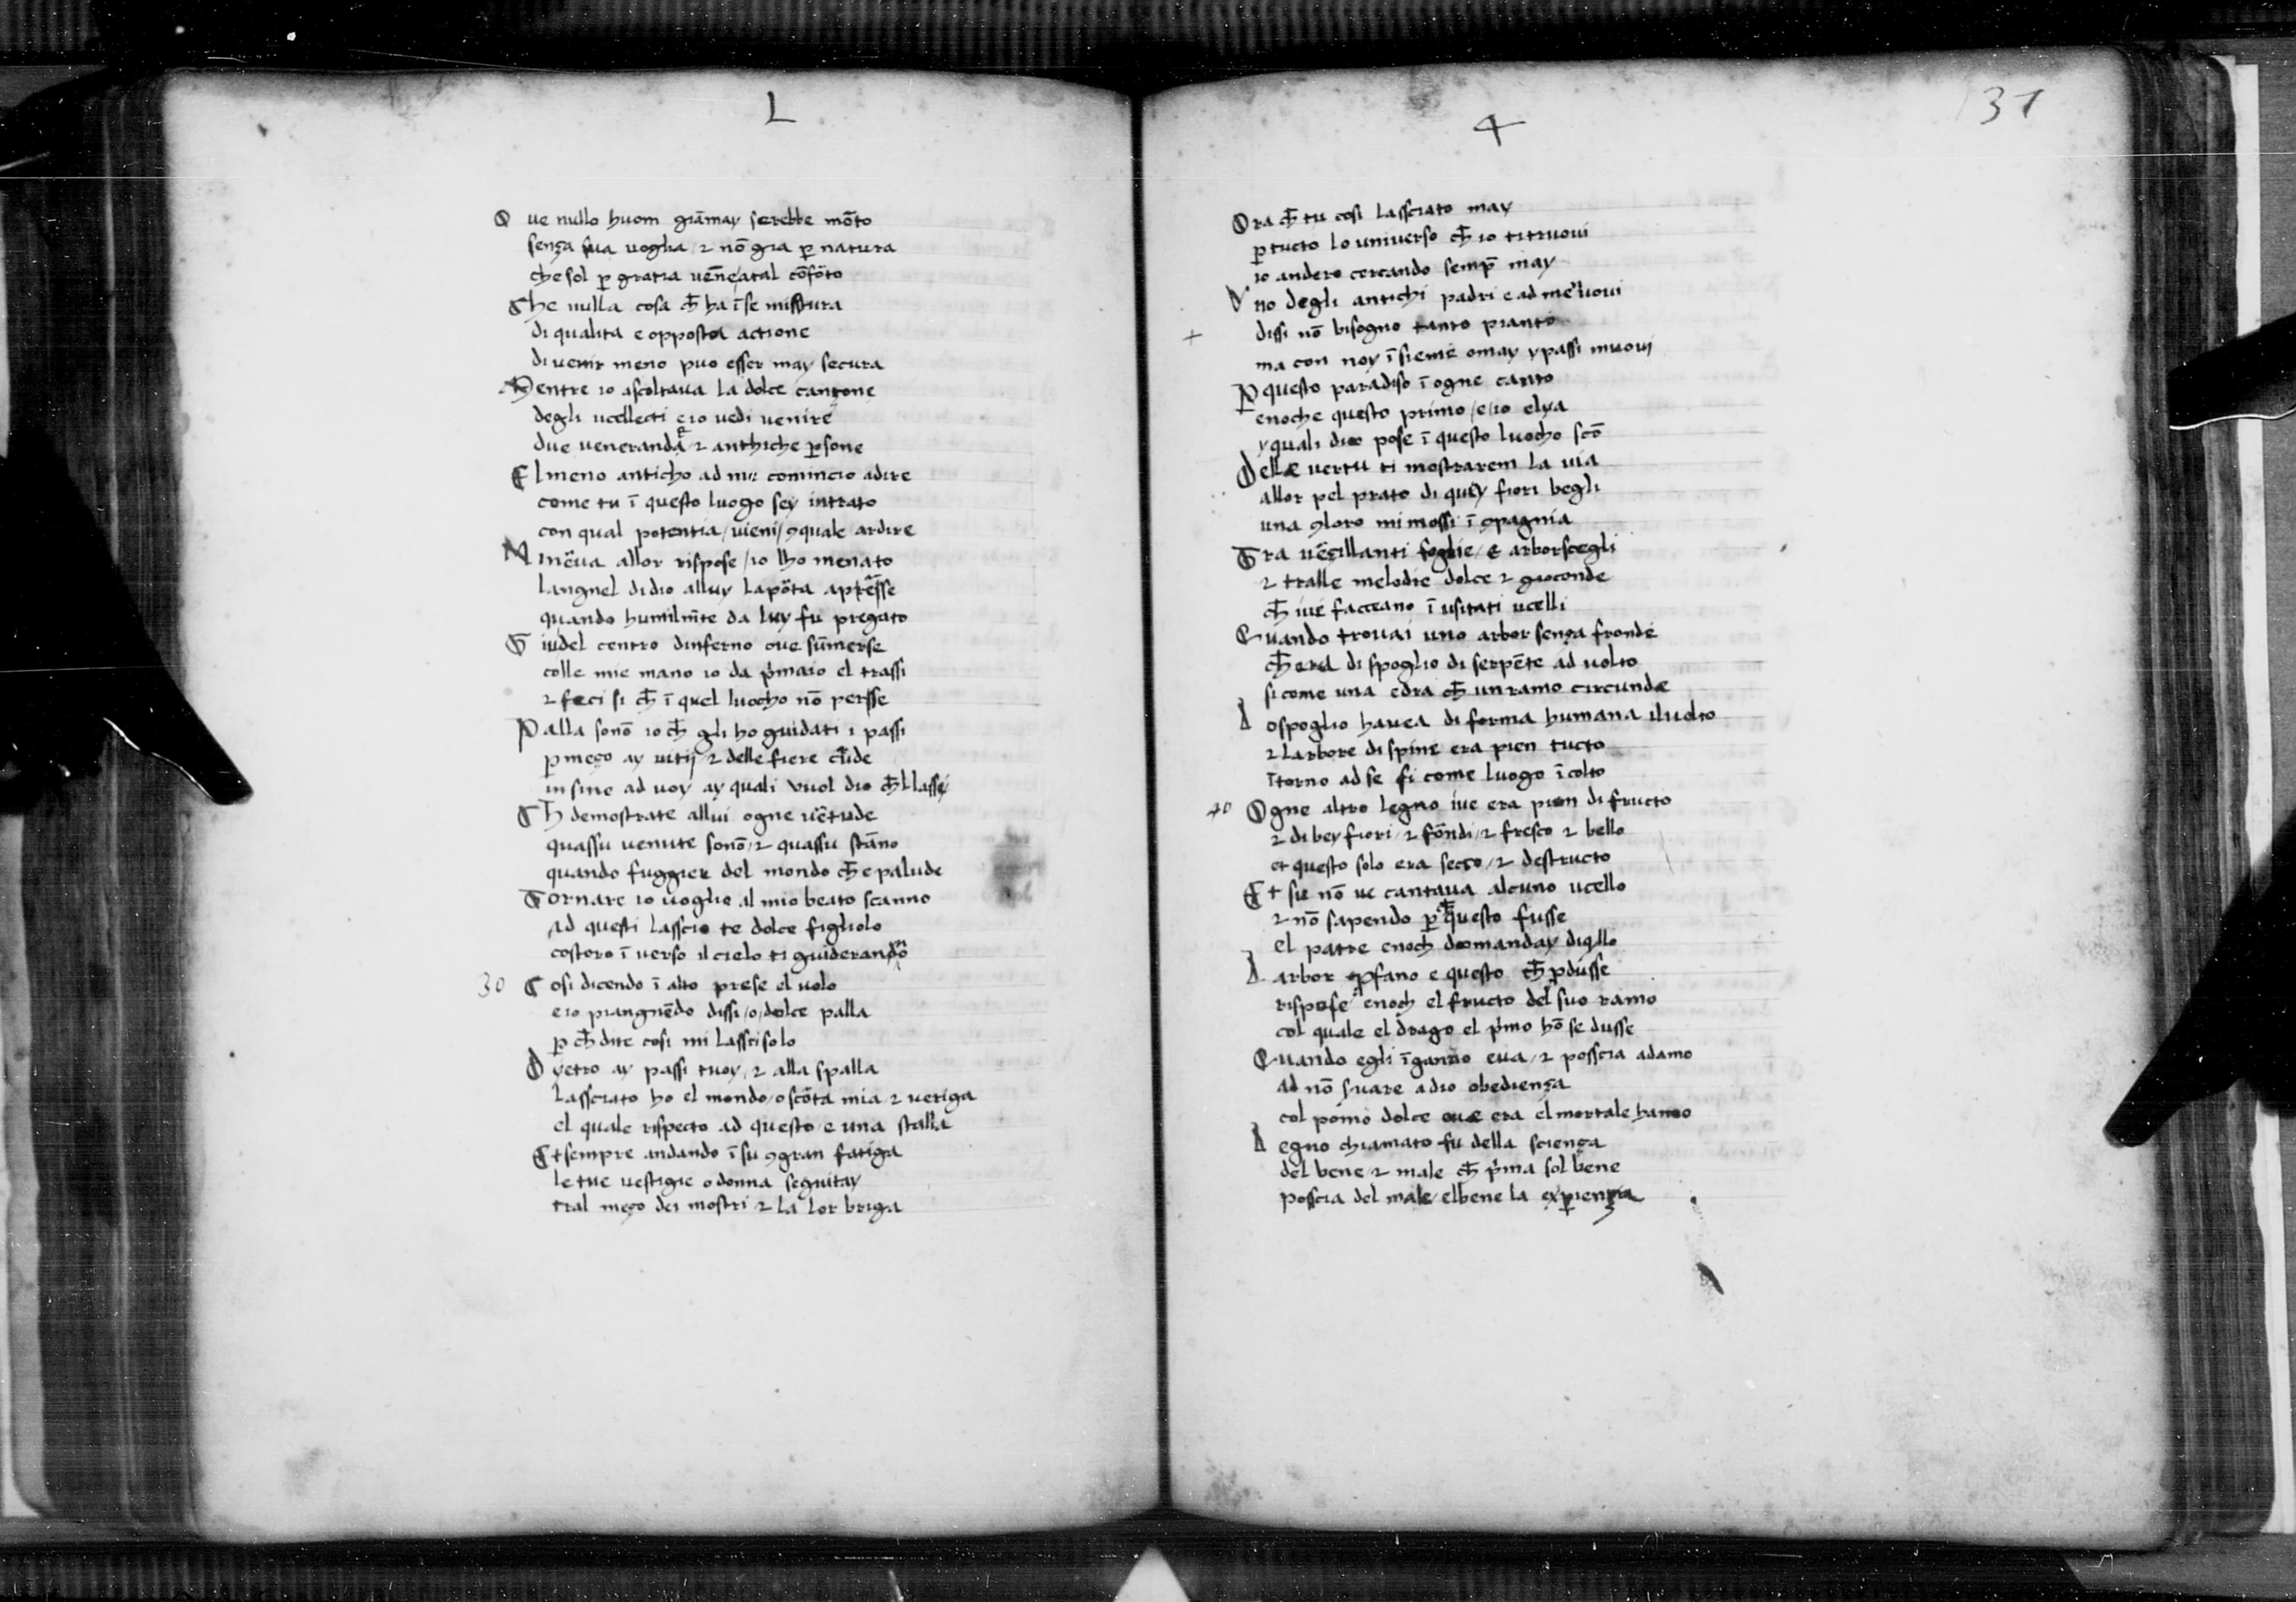 L
O ue nullo huom giāmay serebbe mōto
sença sua uoglia / ⁊ nō gia ꝑ natura
che sol ꝑ gratia uēne/atal cōfōto
Che nulla cosa ch̄ ha ī se misstura
di qualita e opposta actione
di uenir meno puo esser may secura
Mentre io ascoltaua la dolce cançone
degli ucellecti e io uedi uenire
due uenerande ⁊ anthiche ꝑsone
El meno anticho ad me comincio adire
come tu ī questo luogo sey intrato
con qual potentia / uieni / ꝯ quale ardire
Minēua allor rispose / io lho menato
langnel didio alluy lapōta apērsse
quando humilmēte da luy fu pregato
Giu del centro dinferno oue sūmerse
colle mie mano io da pͥmaio el trassi
⁊ feci si ch̄ ī quel luocho nō persse
Palla sonō io ch̄ gli ho guidati i passi
ꝑ meço ay uitij ⁊ delle fiere crude
in sino ad uoy ay quali vuol dio ch̄ llassy
Ch̄ demostrate allui ogne uētude
quassu uenute sonō / ⁊ quassu stāno
quando fuggier del mondo ch̄ e palude
Tornare io uoglio al mio beato scanno
ad questi lasscio te dolce figliolo
costoro ī uerso il cielo ti guiderannō
30 Cosi dicendo ī alto prese el uolo
e io piangnēdo dissi / o / dolce palla
ꝑ ch̄ dite cosi mi lassci solo
Dyetro ay passi tuoy / ⁊ alla spalla
lassciato ho el mondo / o scōta mia ⁊ uetiga
el quale rispecto ad questo e una stalla
Et sempre andando ī su ꝯ gran fatiga
le tue uestigie o donna seguitay
tral meço dei mostri ⁊ la lor briga
4
37
Ora ch̄ tu cosi lassciato may
ꝑ tucto lo uniuerso ch̄ io ti truoui
io andero cercando semp̄ may
Vno degli antichi padri e ad me uoui
+ dissi nō bisogno tanto pianto
ma con noy īsieme omay y passi muoui
P questo paradiso ī ogne canto
enoche questo primo / e / io elya
y quali dio pose ī questo luocho scō
Delle uertu ti mostrarem la uia
allor pel prato di quey fiori begli
una ꝯ loro mi mossi ī ꝯpagnia
Tra uēçillanti foglie / & arborscegli
⁊ tralle melodie dolce ⁊ gioconde
ch̄ iui facceano ī usitati ucelli
Quando trouai uno arbor sença fronde
ch̄ era di spoglio di serpēte ad uolto
si come una edra ch̄ un ramo circunda
Lo spoglio hauea di forma humana iluolto
⁊ larbore di spine era pien tucto
ītorno ad se si come luogo īcolto
40 Ogne altro legno iue era pien di fructo
⁊ di bey fiori / ⁊ fōndi / ⁊ fresco ⁊ bello
et questo solo era secco / ⁊ destructo
Et su nō ue cantaua alcuno ucello
⁊ nō sapendo ꝑ ch̄ questo fusse
el patre enoch domanday diq̄llo
Larbor ꝓfano e questo ch̄ ꝓdusse
rispose enoch el fructo del suo ramo
col quale el drago el pͥmo hō se dusse
Quando egli īganno eua / ⁊ posscia adamo
ad nō s̄uare adio obediença
col pomo dolce oue era el mortale hamo
Legno chiamato fu della sciença
del bene ⁊ male ch̄ pͥma sol bene
posscia del male / el bene la exꝑiença